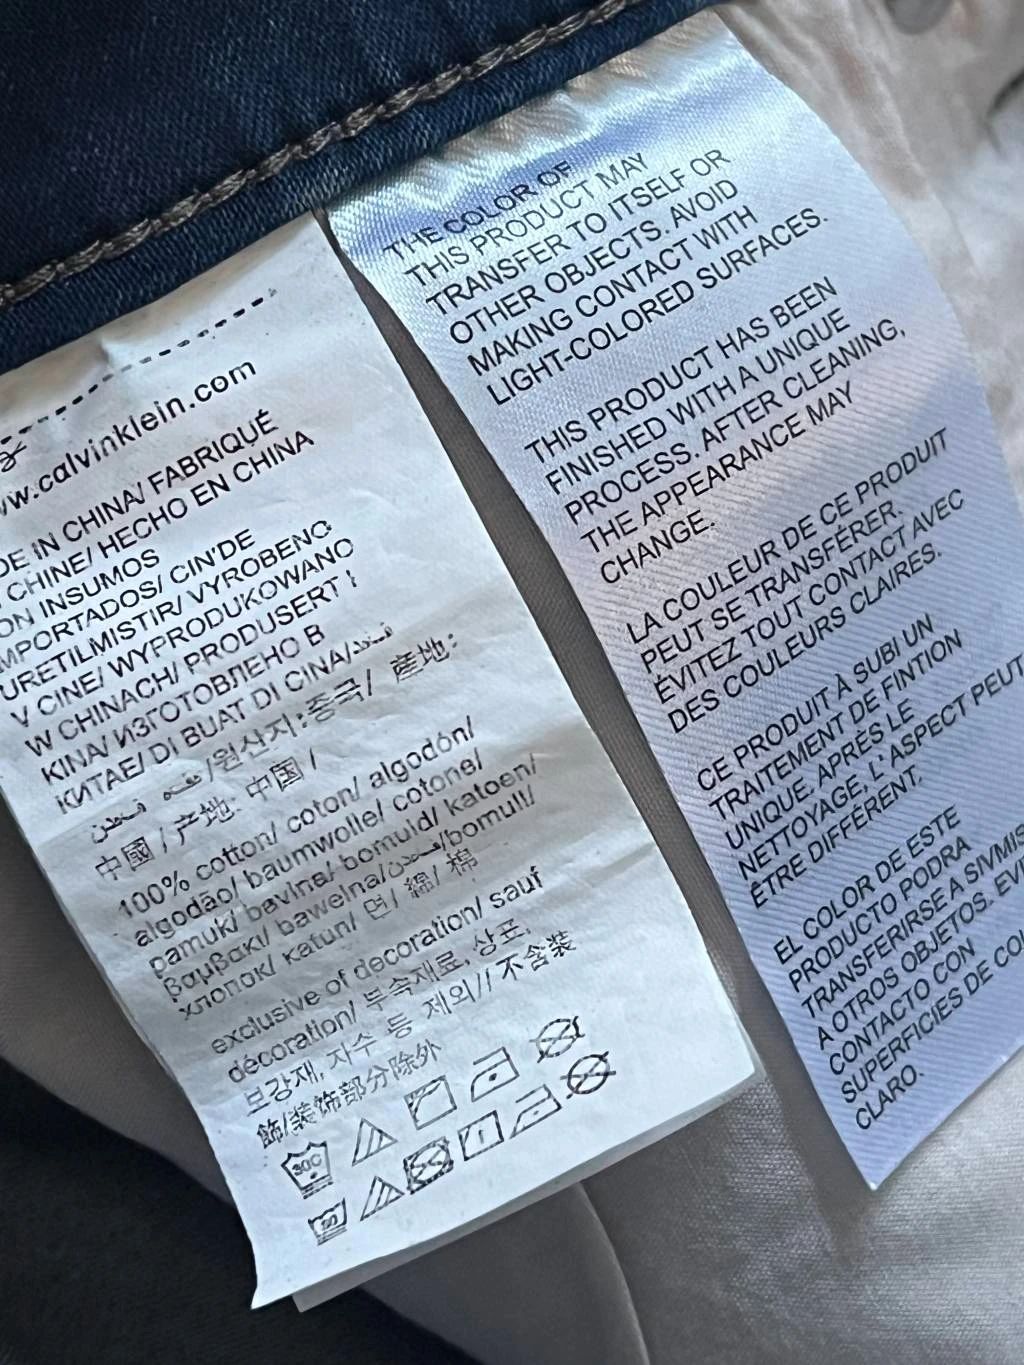 w.calvinklein.com
IN CHINA/ FABRIQUÉ
CHINE/ HECHO EN CHINA
INSUMOS
MPORTADOS/ CIN'DE
URETILMISTIR/ VYROBENO
V CINE/ WYPRODUKOWANO
W CHINACH/ PRODUSERT I
KINA/ ИЗГОТОВЛЕНО В
КИТАЕ/ DI BUAT DI CINA/
/원산지:중국/ 產地:
中國 / 产地: 中国 /
100% cotton/ coton/ algodón/
algodão/ baumwolle/ cotone/
pamuk/ bavlna/ bomuld/ katoen/
βαμβακι/ bawełna/قطن/bomull/
хлопок/ katun/ 면/ 綿/ 棉
exclusive of decoration/ sauf
décoration/ 부속재료, 상표,
보강재, 자수 등 제외// 不含装
飾/装饰部分除外
30C
THE COLOR OF
THIS PRODUCT MAY
TRANSFER TO ITSELF OR
OTHER OBJECTS. AVOID
MAKING CONTACT WITH
LIGHT-COLORED SURFACES.
THIS PRODUCT HAS BEEN
FINISHED WITH A UNIQUE
PROCESS. AFTER CLEANING,
THE APPEARANCE MAY
CHANGE.
LA COULEUR DE CE PRODUIT
PEUT SE TRANSFÉRER.
ÉVITEZ TOUT CONTACT AVEC
DES COULEURS CLAIRES.
CE PRODUIT À SUBI UN
TRAITEMENT DE FINTION
UNIQUE, APRÉS LE
NETTOYAGE, L'ASPECT PEUT
ÊTRE DIFFÉRENT.
EL COLOR DE ESTE
PRODUCTO PODRÁ
TRANSFERIRSE A SIVMIS
A OTROS OBJETOS. EVI
CONTACTO CON
SUPERFICIES DE COL
CLARO.